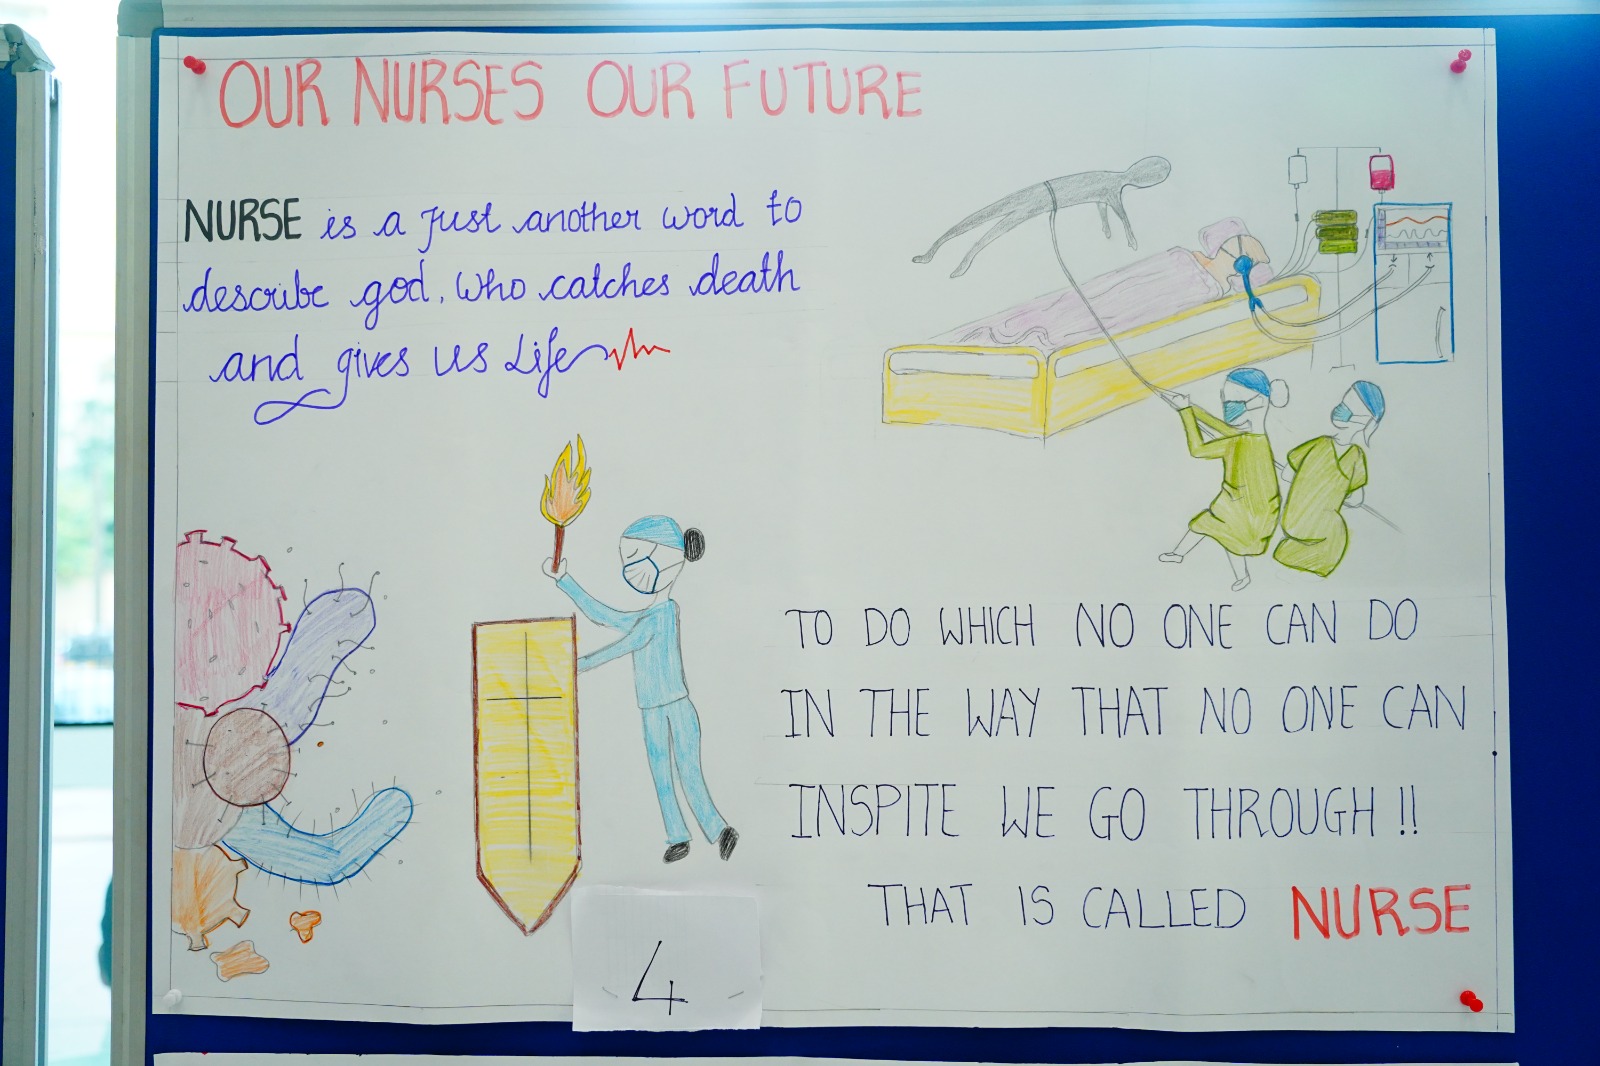 OUR NURSES OUR FUTURE
NURSE is a just another word to
describe god, who catches death
and gives us Life
TO DO WHICH NO ONE CAN DO
IN THE WAY THAT NO ONE CAN
INSPITE WE GO THROUGH !!
THAT IS CALLED NURSE
4